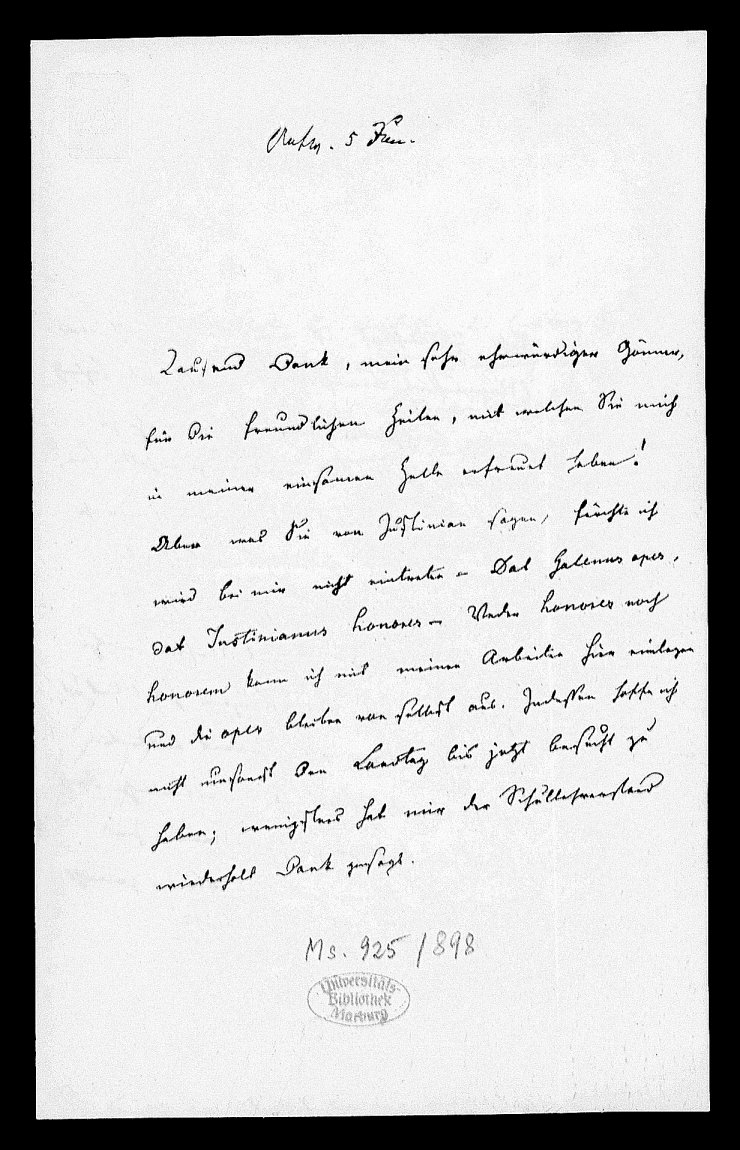 5 Jun.
Tausend Dank, mein sehr ehrwürdiger Gönner,
für die freundlichen Zeilen, mit welchen Sie mich
in meiner einsamen Zelle erfreuet haben!
Aber was Sie von Justinian sagen, fürchte ich
wird bei mir nicht eintreten – Dat Galenus opes,
dat Justinianus honores – Weder honores noch
honorem kann ich mit meinen Arbeiten hier einlegen
und die opes bleiben von selbst aus. Indessen hoffe ich
nicht umsonst den Landtag bis jetzt besucht zu
haben; wenigstens hat mir der Schullehrerstand
wiederholt Dank gesagt.
Ms. 925/898
Universitäts-
Bibliothek
Marburg